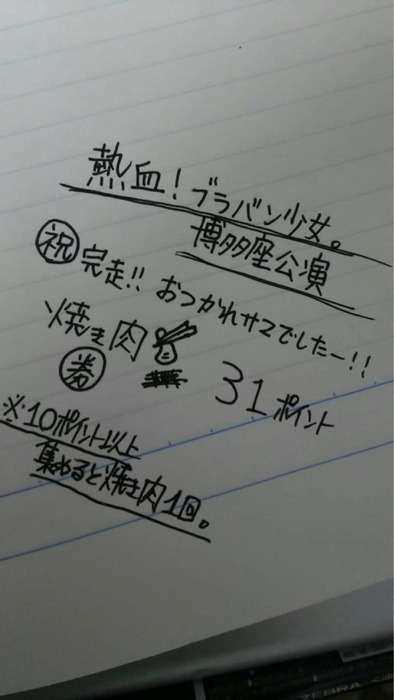 熱血！ブラバン少女。
博多座公演
祝 完走!! おつかれサマでしたー!!
焼き肉
券
31ポイント
※10ポイント以上
集めると焼き肉1回。
ZEBRA